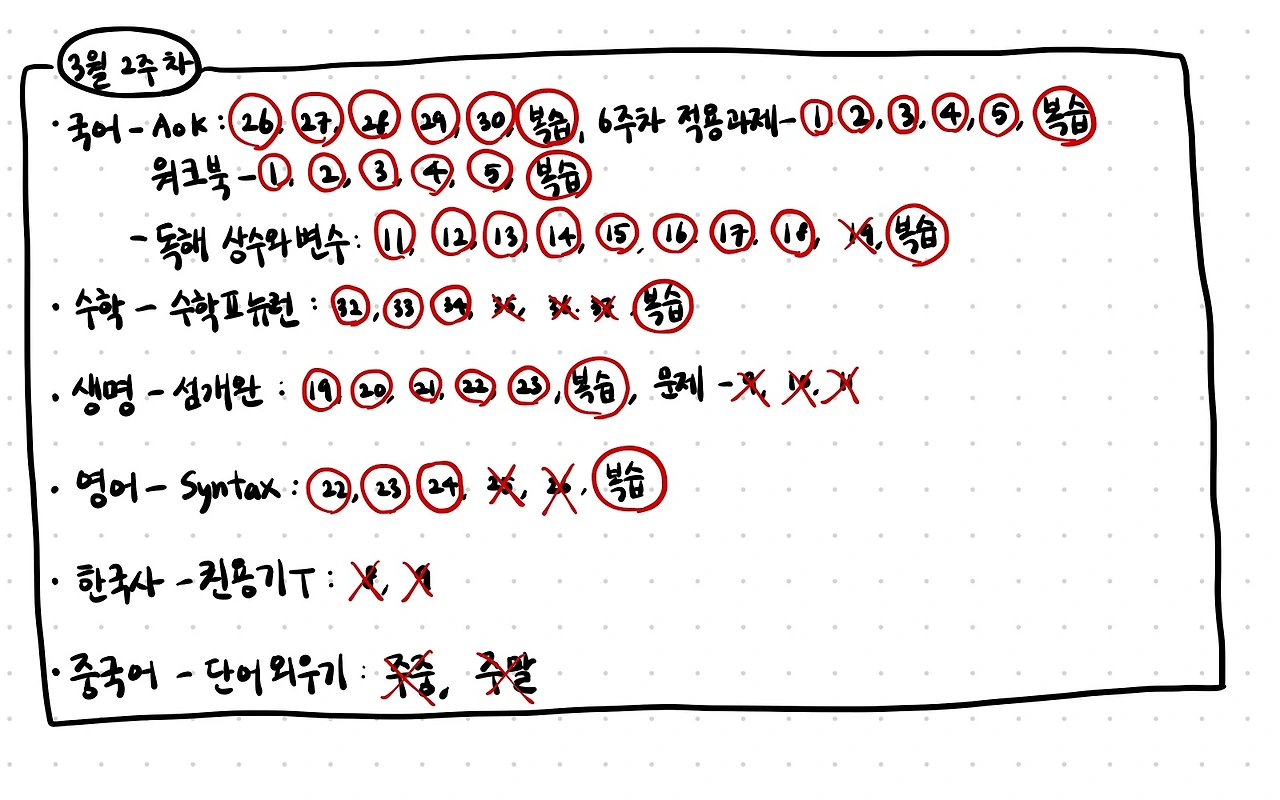 3월 2주차
· 국어 - AOK : 26, 27, 28, 29, 30, 복습, 6주차 적용과제 - 1, 2, 3, 4, 5, 복습
워크북 - 1, 2, 3, 4, 5, 복습
- 독해 상수와 변수 : 11, 12, 13, 14, 15, 16, 17, 18, 19, 복습
· 수학 - 수학포뉴런 : 32, 33, 34, 35, 36, 37, 복습
· 생명 - 섬개완 : 19, 20, 21, 22, 23, 복습, 문제 - 9, 10, 11
· 영어 - Syntax : 22, 23, 24, 25, 26, 복습
· 한국사 - 권용기T : 8, 9
· 중국어 - 단어 외우기 : 주중, 주말